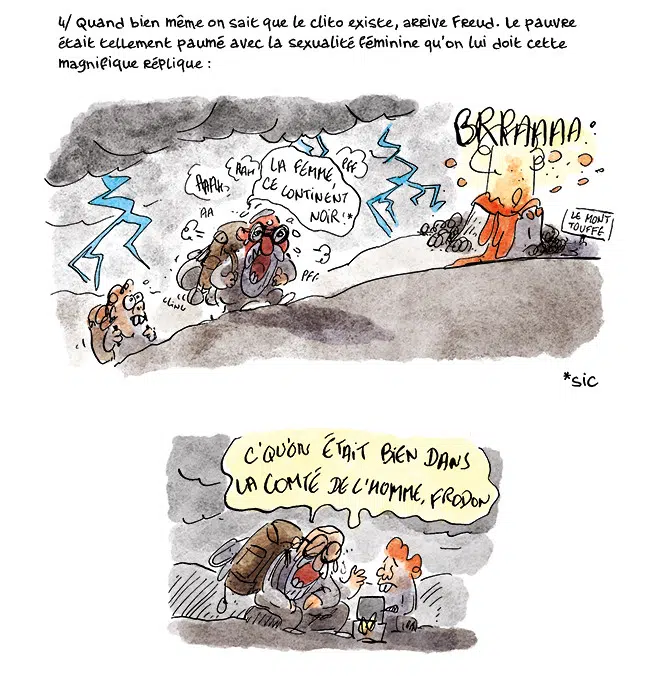 4/ Quand bien même on sait que le clito existe, arrive Freud. Le pauvre
était tellement paumé avec la sexualité féminine qu'on lui doit cette
magnifique réplique :
BRRAAAAA
LA FEMME,
CE CONTINENT
NOIR !*
AAAH
AAH
PFF
AA
PFF
CLING
LE MONT
TOUFFE
*sic
C'QU'ON ÉTAIT BIEN DANS
LA COMTÉ DE L'HOMME, FRODON